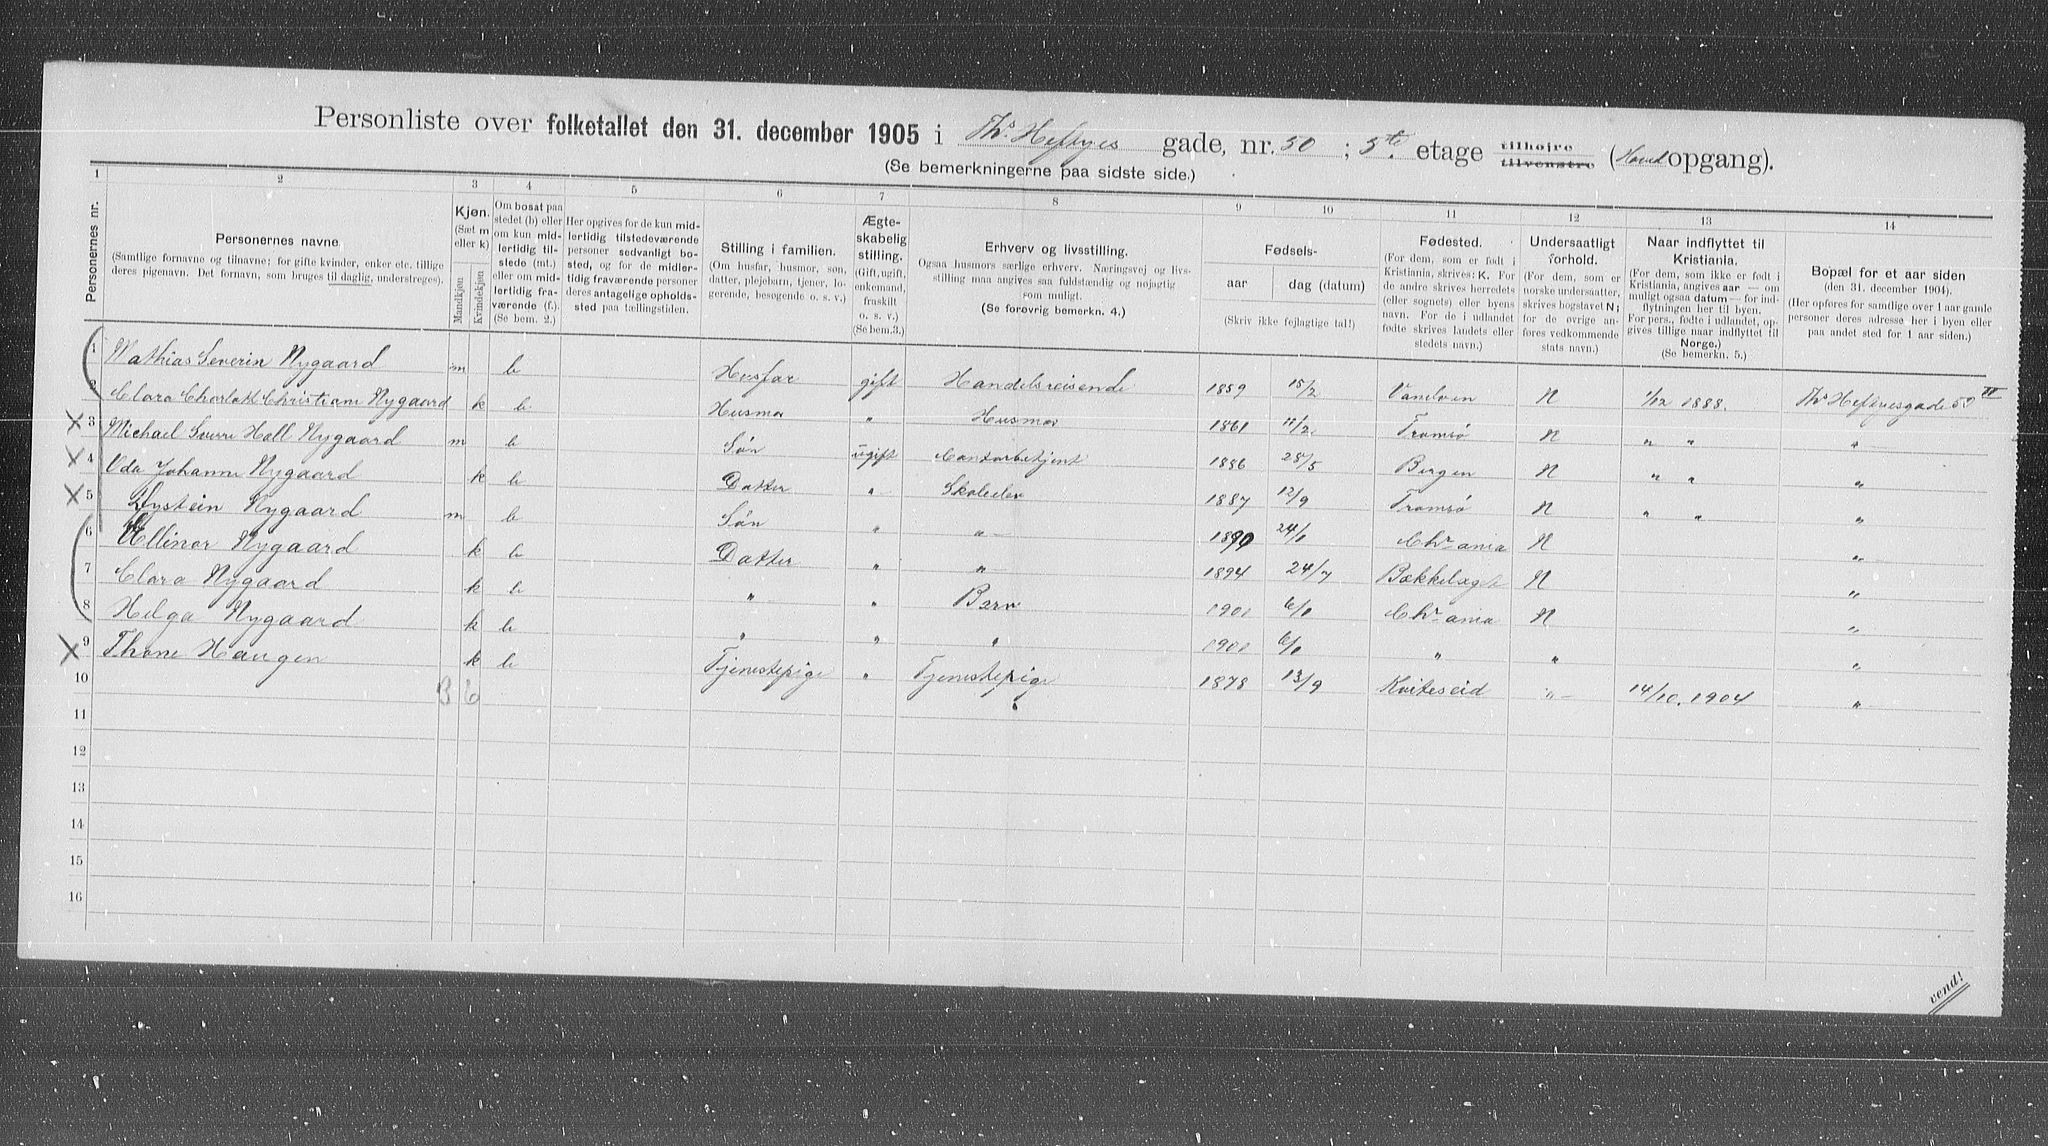 Personliste over folketallet den 31. december 1905 i Ths Heftyes gade, nr. 50 ; 5te etage tilhøire tilvenstre (Hovedopgang).
(Se bemerkningerne paa sidste side.)
1 2 3 4 5 6 7 8 9 10 11 12 13 14
Personernes nr.
Personernes navne
(Samtlige fornavne og tilnavne; for gifte kvinder, enker etc. tillige deres pigenavn. Det fornavn, som bruges til daglig, understreges).
Kjøn. (Sæt m eller k) Mandkjøn Kvindekjøn
Om bosat paa stedet (b) eller om kun midlertidig tilstede (mt.) eller om midlertidig fraværende (f.). (Se bem. 2.)
Her opgives for de kun midlertidig tilstedeværende personer sedvanlig bosted, og for de midlertidig fraværende personer deres antagelige opholdssted paa tællingstiden.
Stilling i familien.
(Om husfar, husmor, søn, datter, plejebarn, tjener, logerende, besøgende o. s. v.)
Ægteskabelig stilling. (Gift, ugift, enkemand, fraskilt o. s. v.) (Se bem. 3.)
Erhverv og livsstilling.
Ogsaa husmors særlige erhverv. Næringsvej og livsstilling maa angives saa fuldstændig og nøjagtig som muligt.
(Se forøvrig bemerkn. 4.)
Fødsels-
aar dag (datum)
(Skriv ikke fejlagtige tal!)
Fødested.
(For dem, som er født i Kristiania, skrives: K. For de andre skrives herredets (eller sognets) eller byens navn. For de i udlandet fødte skrives landets eller stedets navn.)
Undersaatligt forhold.
(For dem, som er norske undersaatter, skrives bogstavet N; for de øvrige anføres vedkommende stats navn.)
Naar indflyttet til Kristiania.
(For dem, som ikke er født i Kristiania, angives aar — om muligt ogsaa datum — for indflytningen her til byen. For pers., fødte i udlandet, opgives tillige naar indflyttet til Norge.)
(Se bemerkn. 5.)
Bopæl for et aar siden
(den 31. december 1904).
(Her opføres for samtlige over 1 aar gamle personer deres adresse her i byen eller paa andet sted for 1 aar siden.)
1 Mathias Severin Nygaard m b Husfar gift Handelsreisende 1859 15/2 N 1/12 1888. Ths Heftyesgade 50 IV
2 Clara Charlott Christiane Nygaard k b Husmor " Husmor 1861 11/2 Tromsø N " " "
3 Michael Sverre Hall Nygaard m b Søn ugift Contorbetjent 1886 28/5 Bergen N " " "
4 Oda Johanne Nygaard k b Datter " Skoleelev 1887 12/9 Tromsø N " " "
5 Øystein Nygaard m b Søn " " 1890 24/1 Chrania N "
6 Ellinor Nygaard k b Datter " " 1894 24/7 Bækkelaget N "
7 Clara Nygaard k b " " Barn 1901 6/1 Chrania N "
8 Helga Nygaard k b " " " 1901 6/1 " " "
9 Thone Haugen k b Tjenestepige " Tjenestepige 1878 13/9 Kviteseid " 14/10. 1904 "
10 3 6
11
12
13
14
15
16
vend!